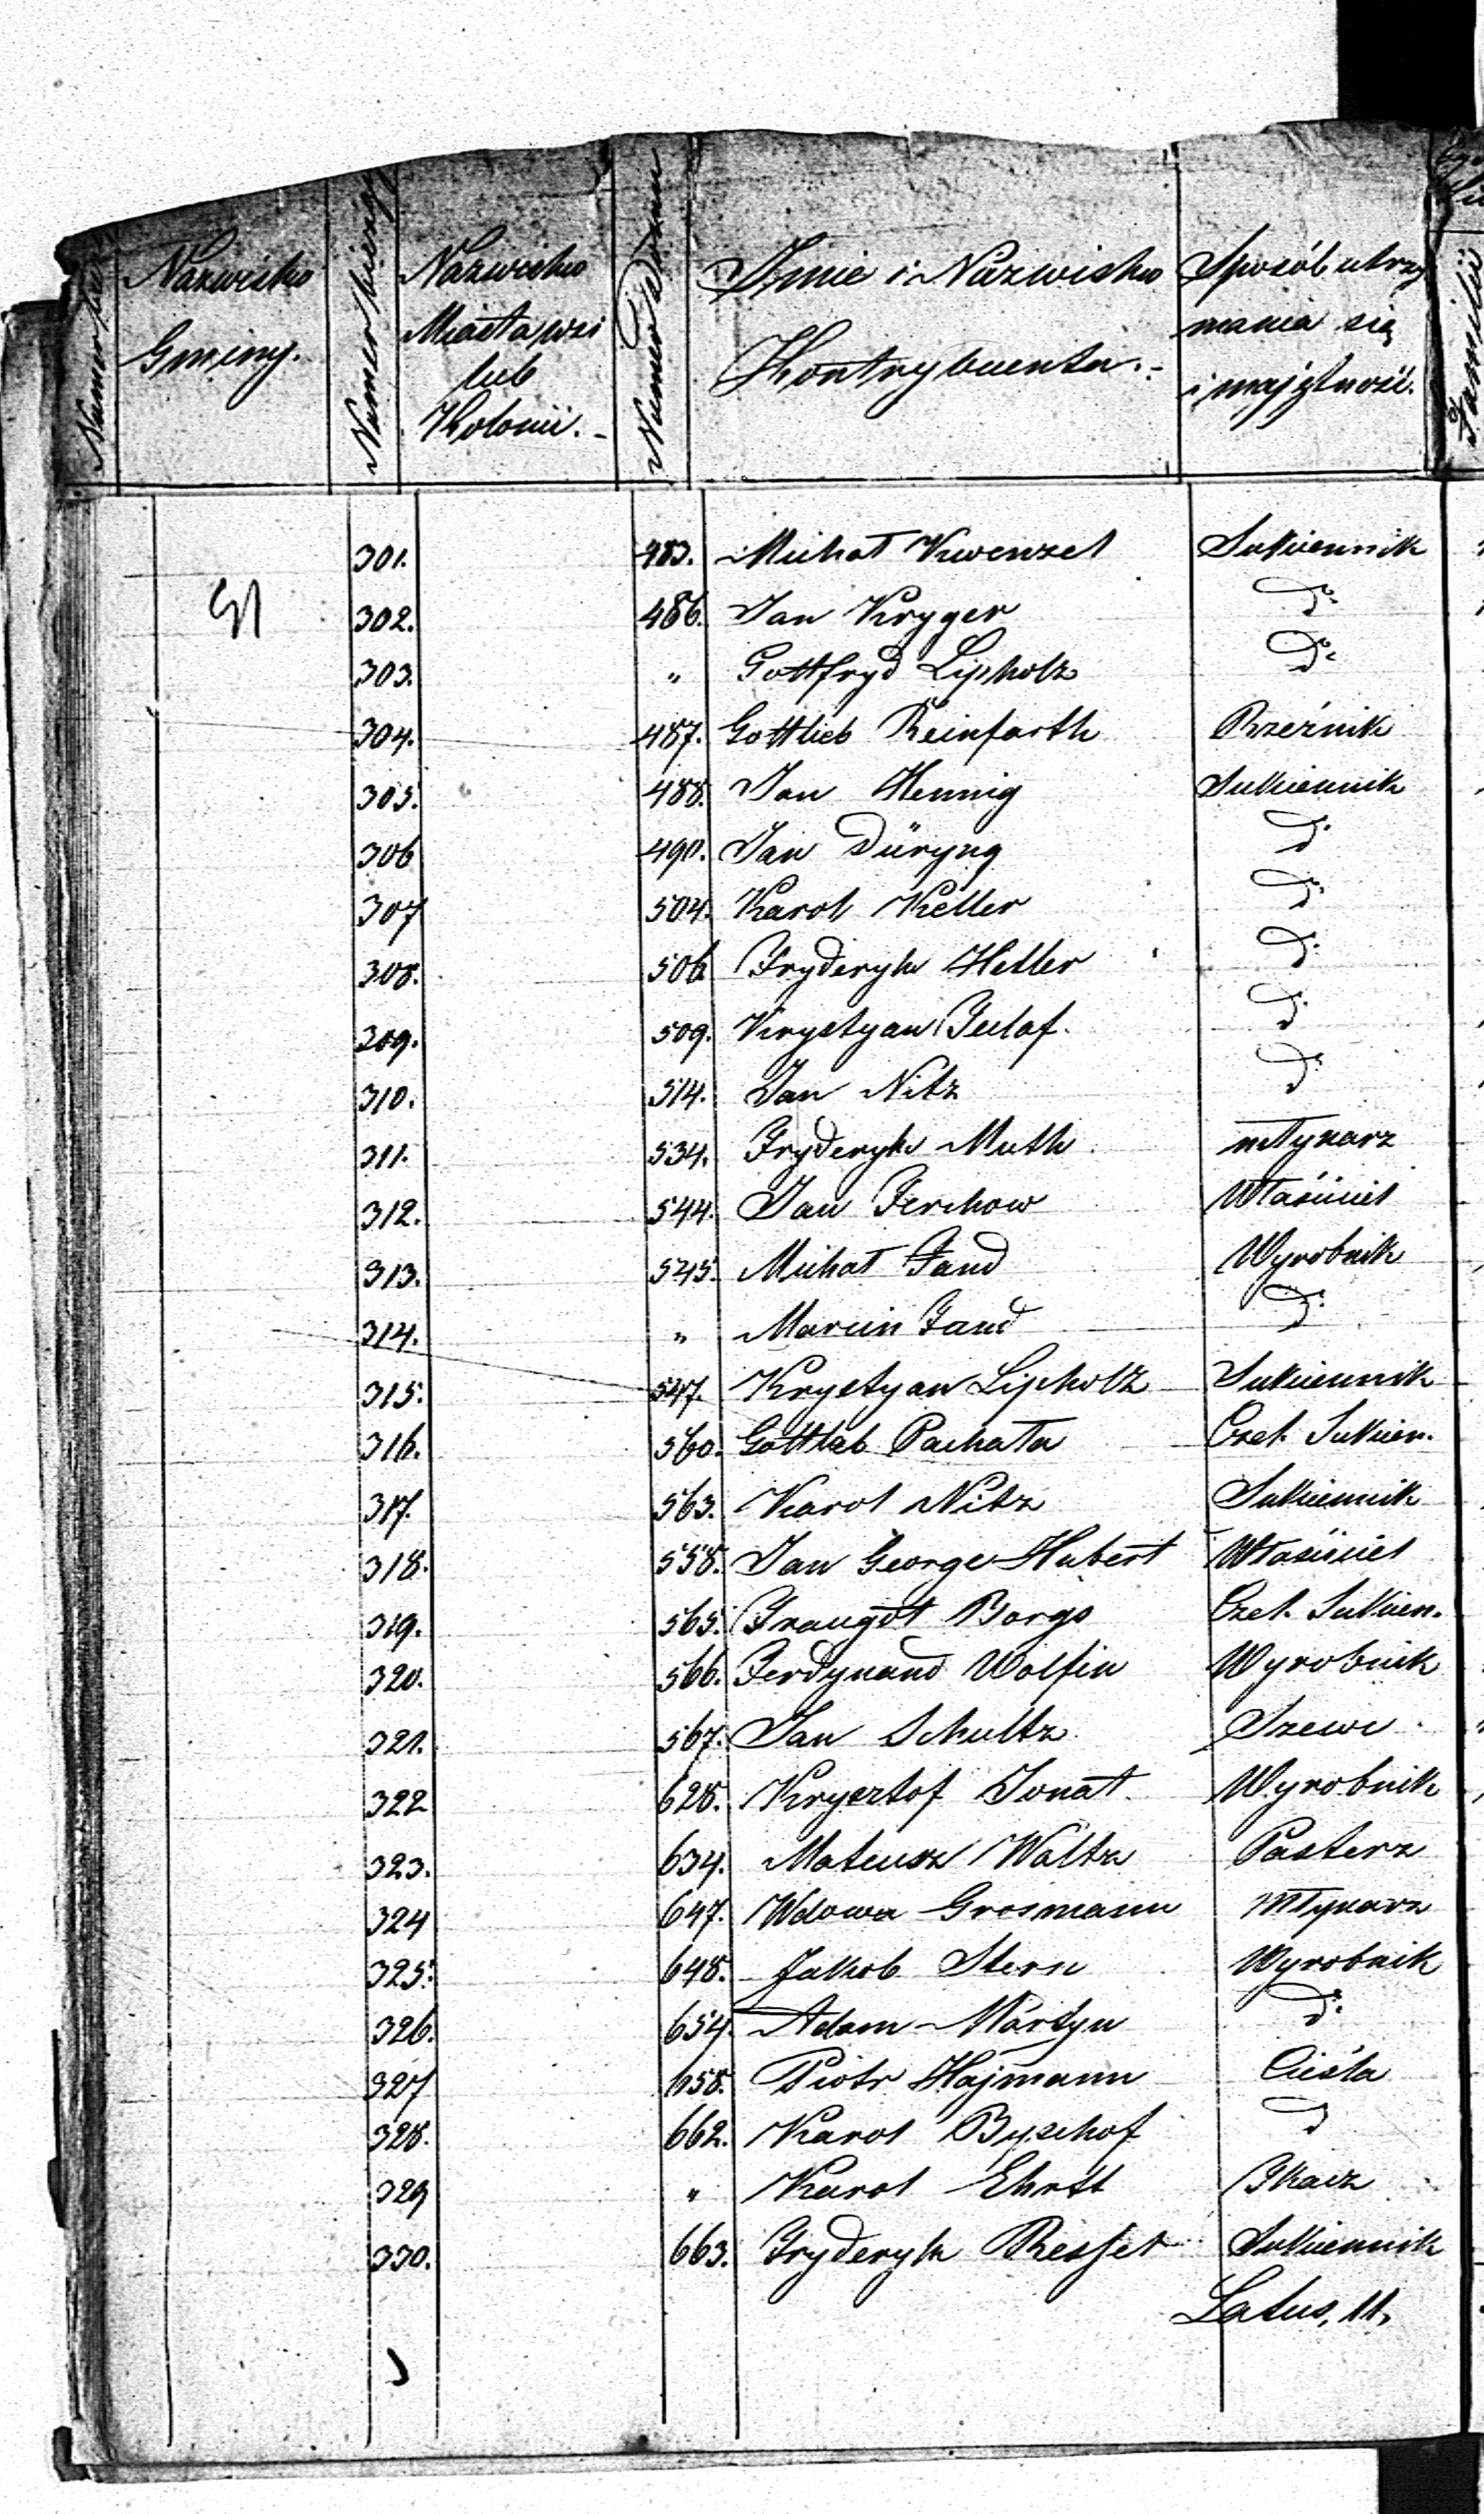 Numer
Nazwisko
Gminy.
Numer bieżący
Nazwisko
Miasta, wsi
lub
Kolonii.
Numer Domu
Imie i Nazwisko
Kontrybuenta.
Sposób utrzy
mania się
i majętność.
Familii
301. 483. Michał Kwenzel Sukiennik
302. 486. Jan Kryger do
303. " Gottfryd Lipholz do
304. 487. Gottlieb Reinfarth Rzeźnik
305. 488. Jan Hennig Sukiennik
306 490. Jan Düryng d
307 504. Karol Keller d
308. 506 Fryderyk Heller d
309. 509. Krystyan Gulaf. d
310. 514. Jan Nitz d
311. 534. Fryderyk Muth młynarz
312. 544. Jan Ferchow Właściciel
313. 545. Michał Fand Wyrobnik
314. " Marcin Fand d
315. 547. Krystyan Lipholz Sukiennik
316. 560. Gottlieb Pachała Czel. Sukien.
317. 563. Karol Nitz Sukiennik
318. 558. Jan George Hubert Właściciel
319. 565. Traugot Borgs Czel. Sukien.
320. 566. Ferdynand Wolfin Wyrobnik
321. 567. Jan Schultz Szewc
322 628. Krysztof Jonat Wyrobnik
323. 634. Mateusz Waltz Pasterz
324 647. Wdowa Grosmann Młynarz
325. 648. Jakob Stern Wyrobnik
326. 654. Adam Martyn d
327 658. Piotr Hajmann Cieśla
328. 662. Karol Byschof d
329 " Karol Ehrtt Tkacz
330. 663. Fryderyk Ressel Sukiennik
Latus, 11,